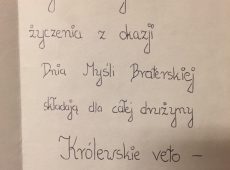 życzenia z okazji
Dnia Myśli Braterskiej
składają dla całej drużyny
Królewskie veto –